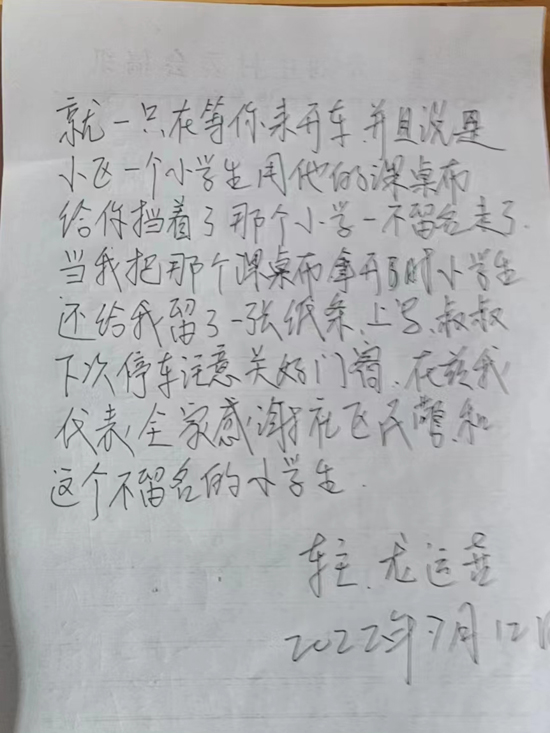 就一只在等你来开车并且说是
小区一个小学生用他的课桌布
给你挡着了那个小学一不留名走了.
当我把那个课桌布拿开了时小学生
还给我留了一张纸条,上写,叔叔
下次停车注意关好门窗,在兹我
代表全家感谢社区民警,和
这个不留名的小学生.
车主,尤运
2022年7月12日